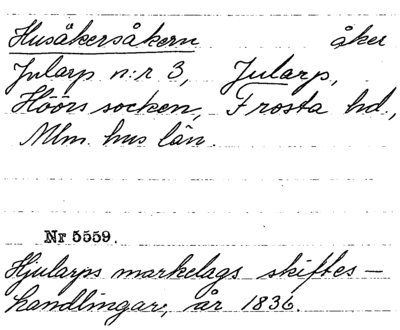 Husåkersåkern åker
Jularp n:r 3, Jularp,
Höörs socken, Frosta hd.,
Mlm. hus län.
Nr 5559.
Hjularps markelags skiftes-
handlingar, år 1836.